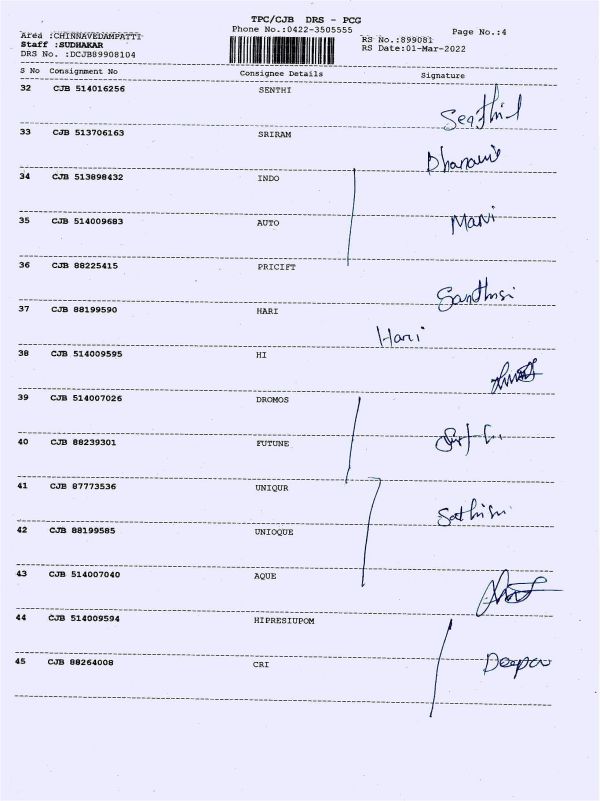 TPC/CJB DRS - PCG
Phone No.:0422-3505555
Page No.:4
Area :CHINNAVEDAMPATTI
RS No.:899081
Staff :SUDHAKAR
RS Date:01-Mar-2022
DRS No. :DCJB89908104
S No Consignment No Consignee Details Signature
32 CJB 514016256 SENTHI
Senthil
33 CJB 513706163 SRIRAM
34 CJB 513898432 INDO
35 CJB 514009683 AUTO Mani
36 CJB 88225415 PRICIFT
37 CJB 88199590 HARI
Hari
38 CJB 514009595 HI
39 CJB 514007026 DROMOS
40 CJB 88239301 FUTUNE
41 CJB 87773536 UNIQUR
42 CJB 88199585 UNIOQUE
43 CJB 514007040 AQUE
44 CJB 514009594 HIPRESIUPOM
45 CJB 88264008 CRI